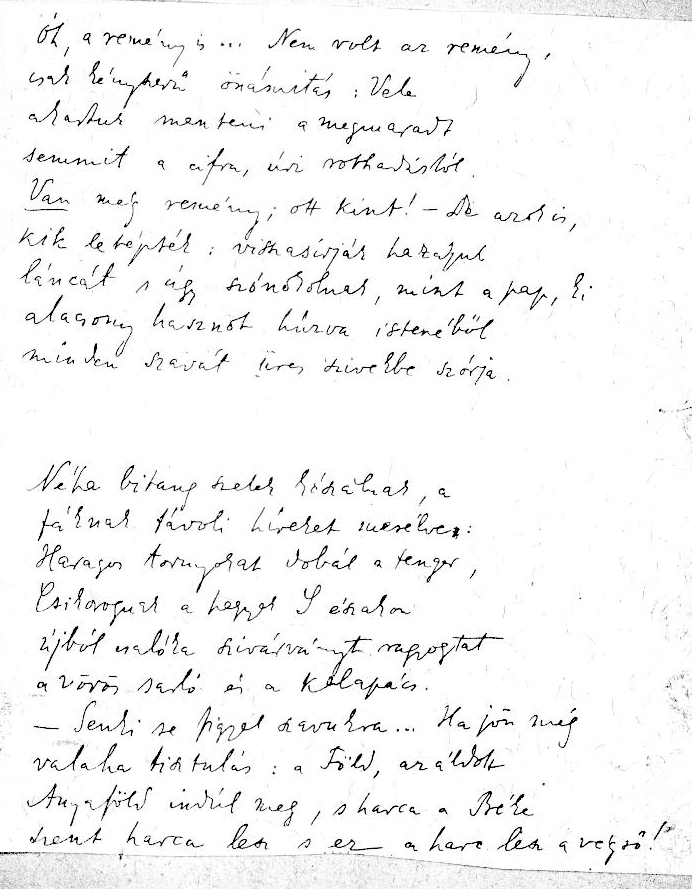 Óh, a remény is... Nem volt az remény,
csak kényszerű önámítás: Vele
akartuk menteni a megmaradt
semmit a cifra, úri rothadástól.
Van még remény; ott kint! – De azok is,
kik letépték: visszasírják hazajuk
láncát s úgy szónokolnak, mint a pap, ki
alacsony hasznot húzva istenéből
minden szavát üres szivekbe szórja.
Néha bitang szelek kószálnak, a
fáknak távoli híreket mesélve:
Haragos tornyokat dobál a tenger,
Csikorognak a hegyek S északon
újból csalóka szivárványt ragyogtat
a vörös sarló és a kalapács.
– Senki se figyel szavukra... Ha jön még
valaha tisztulás: a Föld, az áldott
Anyaföld indúl meg, s harca a Béke
szent harca lesz s ez a harc lesz a végső!